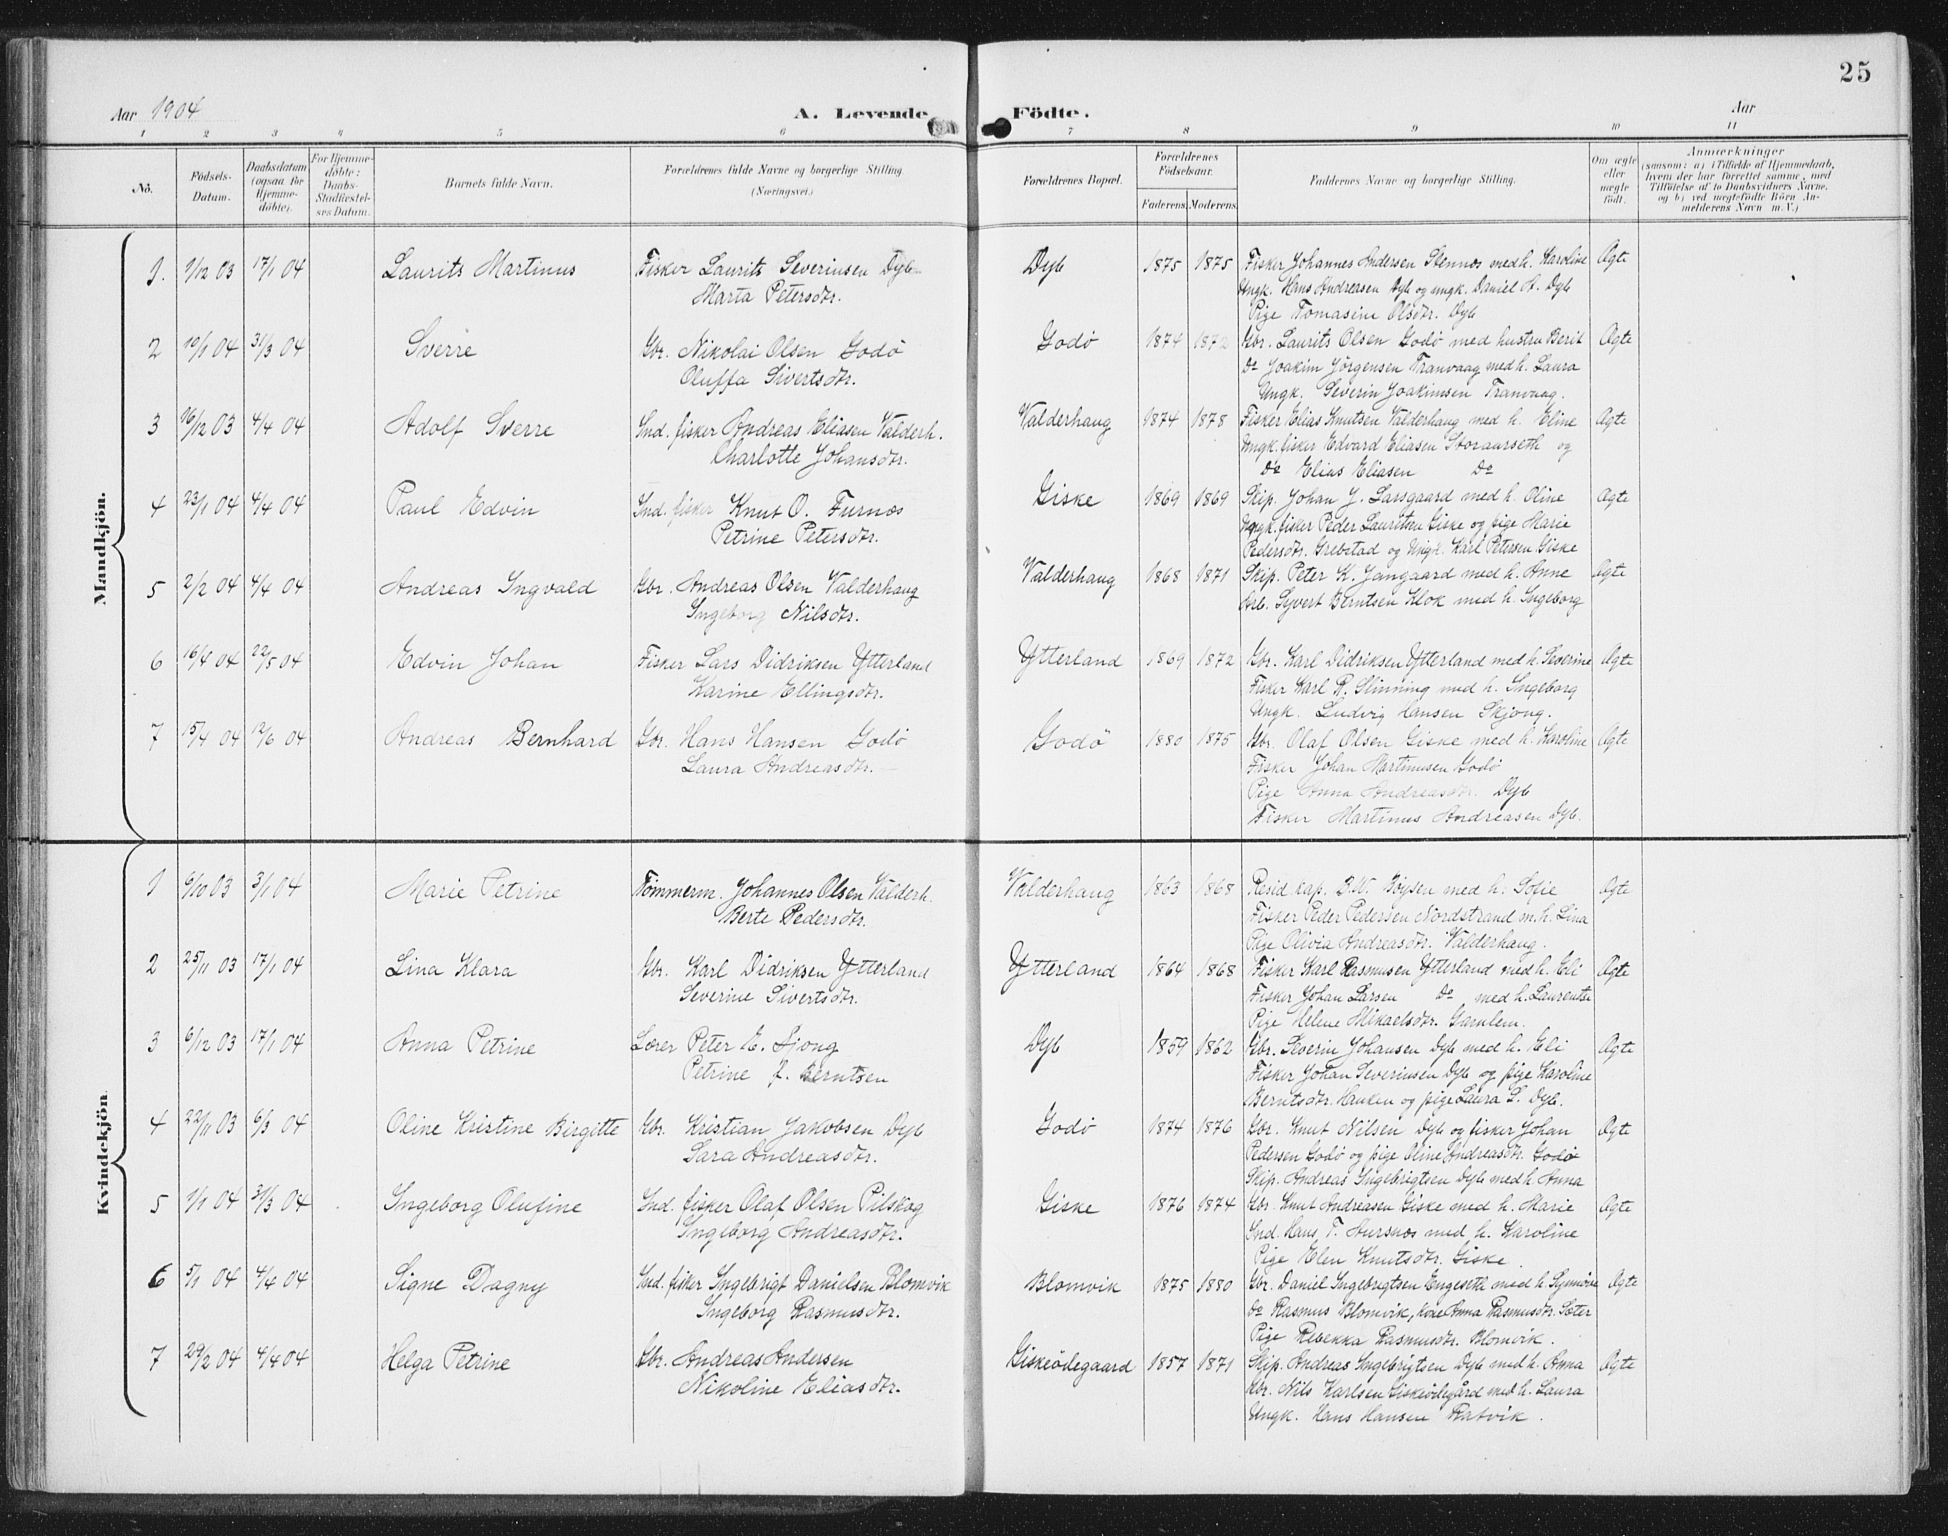 25
Aar 1904 A. Levende Födte. Aar
1 2 3 4 5 6 7 8 9 10 11
No. Födsels-Datum. Daabsdatum (ogsaa for Hjemme-döbte). For Hjemme-döbte: Daabs-Stadfæstel-ses Datum. Barnets fulde Navn. Forældrenes fulde Navne og borgerlige Stilling (Næringsvei.) Forældrenes Bopæl. Forældrenes Födselsaar. Faderens. Moderens. Faddernes Navne og borgerlige Stilling. Om ægte eller uægte födt. Anmærkninger (saasom: a) i Tilfælde af Hjemmedaab, hvem der har forrettet samme, med Tilföielse af to Daabsvidners Navne, og b) ved uægtefödte Börn An-melderens Navn m. V.)
Mandkjön.
1. 9/12 03 17/1 04 Laurits Martinus Fisker Laurits Severinsen Dyb Dyb 1875 1875 Fisker Johannes Andersen Stennes med h. Karoline Ægte
Marta Petersdtr. Ungk. Hans Andreasen Dyb og ungk. Daniel A. Dyb
Pige Tomasine Olsdtr. Dyb
2 10/1 04 31/3 04 Sverre Gbr. Nikolai Olsen Godö Godö 1874 1872 Gbr. Laurits Olsen Godö med hustru Berit Ægte
Oluffa Sivertsdtr. Do Joakim Jörgensen Tranvaag med h. Laura
Ungk. Severin Joakimsen Tranvaag.
3 16/12 03 4/4 04 Adolf Sverre Ind. fisker Andreas Eliasen Valderh. Valderhaug 1874 1878 Fisker Elias Knutsen Valderhaug med h. Eline Ægte
Charlotte Johansdtr. Ungk. fisker Edvard Eliasen Storaurseth og
Do Elias Eliasen Do
4 23/1 04 4/4 04 Paul Edvin Ind. fisker Knut O. Furnes Giske 1869 1869 Skip. Johan J. Larsgaard med h. Oline Ægte
Petrine Petersdtr. Ungk. fisker Peder Lauritsen Giske og pige Marie
Pedersdtr. Grebstad og Ungk. Karl Petersen Giske
5 2/2 04 4/4 04 Andreas Ingvald Gbr. Andreas Olsen Valderhaug Valderhaug 1868 1871 Skip. Peter K. Jangaard med h. Anne Ægte
Ingeborg Nilsdtr. Arb. Syvert Berntsen Klok med h. Ingeborg
6 16/4 04 22/5 04 Edvin Johan Fisker Lars Didriksen Ytterland Ytterland 1869 1872 Gbr. Karl Didriksen Ytterland med h. Severine Ægte
Karine Ellingsdtr. Fisker Karl R. Slinning med h. Ingeborg
Ungk. Ludvig Hansen Skjong.
7 15/4 04 12/6 04 Andreas Bernhard Gbr. Hans Hansen Godö Godö 1880 1875 Gbr. Olaf Olsen Giske med h. Karoline Ægte
Laura Andreasdtr. Fisker Johan Martinusen Godö
Pige Anna Andreasdtr. Dyb
Fisker Martinus Andreasen Dyb.
Kvindekjön.
1 6/10 03 3/1 04 Marie Petrine Tömmerm. Johannes Olsen Valderh. Valderhaug 1863 1868 Resid. kap. B.W. Böysen med h. Sofie Ægte
Berte Pedersdtr. Fisker Peder Pedersen Nordstrand m. h. Lina
Pige Olivia Andreasdtr. Valderhaug.
2 25/11 03 17/1 04 Lina Klara Gbr. Karl Didriksen Ytterland Ytterland 1864 1868 Fisker Karl Rasmusen Ytterland med h. Eli Ægte
Severine Sivertsdtr. Fisker Johan Larsen Do med h. Laurentse
Pige Helene Mikaelsdtr. Gamlem.
3 6/12 03 17/1 04 Anna Petrine Lærer Peter E. Giong Dyb 1859 1862 Gbr. Severin Johansen Dyb med h. Eli Ægte
Petrine J. Berntsen Fisker Johan Severinsen Dyb og pige Karoline
Berntsdtr. Hauken og pige Laura L. Dyb.
4 22/11 03 6/3 04 Oline Kristine Birgitte Gbr. Kristian Jakobsen Dyb Godö 1874 1876 Gbr. Knut Nilsen Dyb og fisker Johan Ægte
Sara Andreasdtr. Pedersen Godö og pige Oline Andreasdtr. Godö
Skip. Andreas Ingebrigtsen Dyb med h. Anna
5 1/1 04 31/3 04 Ingeborg Olufine Ind. fisker Olaf Olsen Pilskog Giske 1876 1874 Gbr. Knut Andreasen Giske med h. Marie Ægte
Ingeborg Andreasdtr. Ind. Hans T. Aursnes med h. Karoline
Pige Elen Knutsdtr. Giske.
6 5/1 04 4/4 04 Signe Dagny Ind. fisker Ingebrigt Danielsen Blomvik Blomvik 1875 1880 Gbr. Daniel Ingebrigtsen Engeseth med h. Synnöve Ægte
Ingeborg Rasmusdtr. Do Rasmus Blomvik, kone Anna Rasmusdtr. Sæter
Pige Rebekka Rasmusdtr. Blomvik.
7 29/2 04 4/4 04 Helga Petrine Gbr. Andreas Andersen Giskeödegaard 1857 1871 Skip. Andreas Ingebrigtsen Dyb med h. Anna Ægte
Nikoline Eliasdtr. Gbr. Nils Karlsen Giskeödegård med h. Laura
Ungk. Hans Hansen Ratvik.